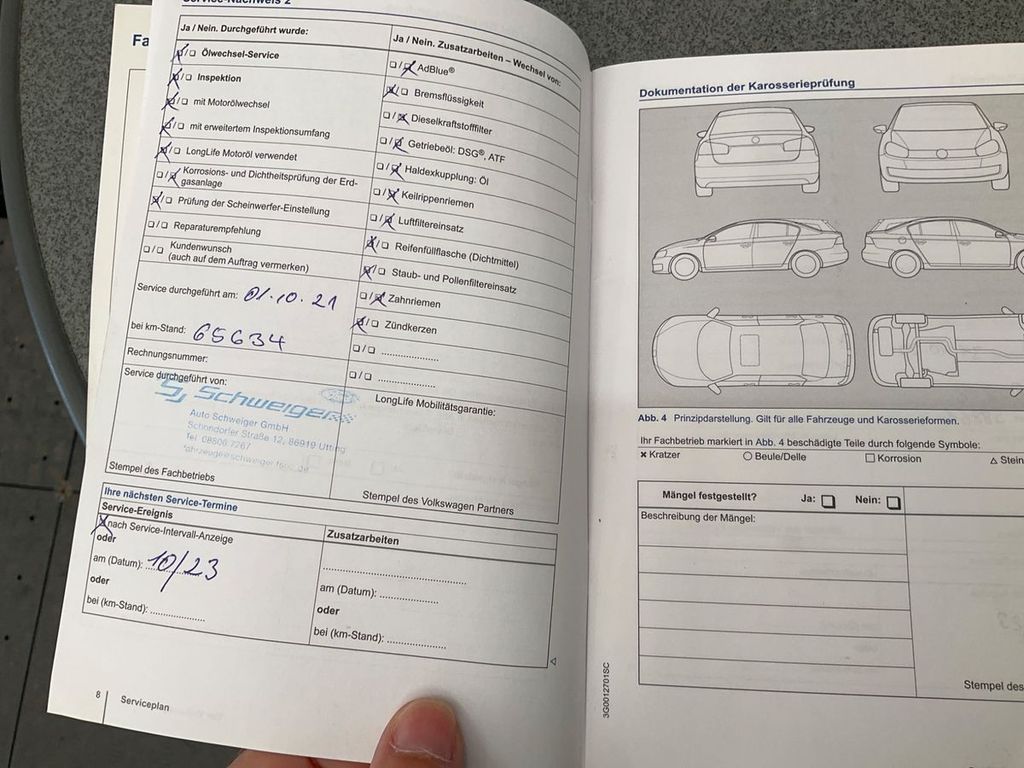 Service-Nachweis 2
Ja / Nein. Durchgeführt wurde:
☒/☐ Ölwechsel-Service
☒/☐ Inspektion
☒/☐ mit Motorölwechsel
☒/☐ mit erweitertem Inspektionsumfang
☒/☐ LongLife Motoröl verwendet
☐/☒ Korrosions- und Dichtheitsprüfung der Erd-
gasanlage
☒/☐ Prüfung der Scheinwerfer-Einstellung
☐/☐ Reparaturempfehlung
☐/☐ Kundenwunsch
(auch auf dem Auftrag vermerken)
Service durchgeführt am: 01.10.21
bei km-Stand: 65634
Rechnungsnummer:
Service durchgeführt von:
Schweiger
Auto Schweiger GmbH
Schondorfer Straße 12, 86919 Utting
Tel. 08806 7267
Stempel des Fachbetriebs
Ja / Nein. Zusatzarbeiten – Wechsel von:
☐/☒ AdBlue®
☒/☐ Bremsflüssigkeit
☐/☒ Dieselkraftstofffilter
☐/☒ Getriebeöl: DSG®, ATF
☐/☒ Haldexkupplung: Öl
☐/☒ Keilrippenriemen
☐/☒ Luftfiltereinsatz
☒/☐ Reifenfüllflasche (Dichtmittel)
☒/☐ Staub- und Pollenfiltereinsatz
☐/☒ Zahnriemen
☒/☐ Zündkerzen
☐/☐ ....................
☐/☐ ....................
LongLife Mobilitätsgarantie:
Stempel des Volkswagen Partners
Ihre nächsten Service-Termine
Service-Ereignis
☒ nach Service-Intervall-Anzeige
oder
am (Datum): 10/23
oder
bei (km-Stand): ....................
Zusatzarbeiten
..................................................
am (Datum): ....................
oder
bei (km-Stand): ....................
8
Serviceplan
Fa
Dokumentation der Karosserieprüfung
Abb. 4 Prinzipdarstellung. Gilt für alle Fahrzeuge und Karosserieformen.
Ihr Fachbetrieb markiert in Abb. 4 beschädigte Teile durch folgende Symbole:
× Kratzer ○ Beule/Delle □ Korrosion △ Stein
Mängel festgestellt? Ja: ☐ Nein: ☐
Beschreibung der Mängel:
Stempel des
3G0012701SC